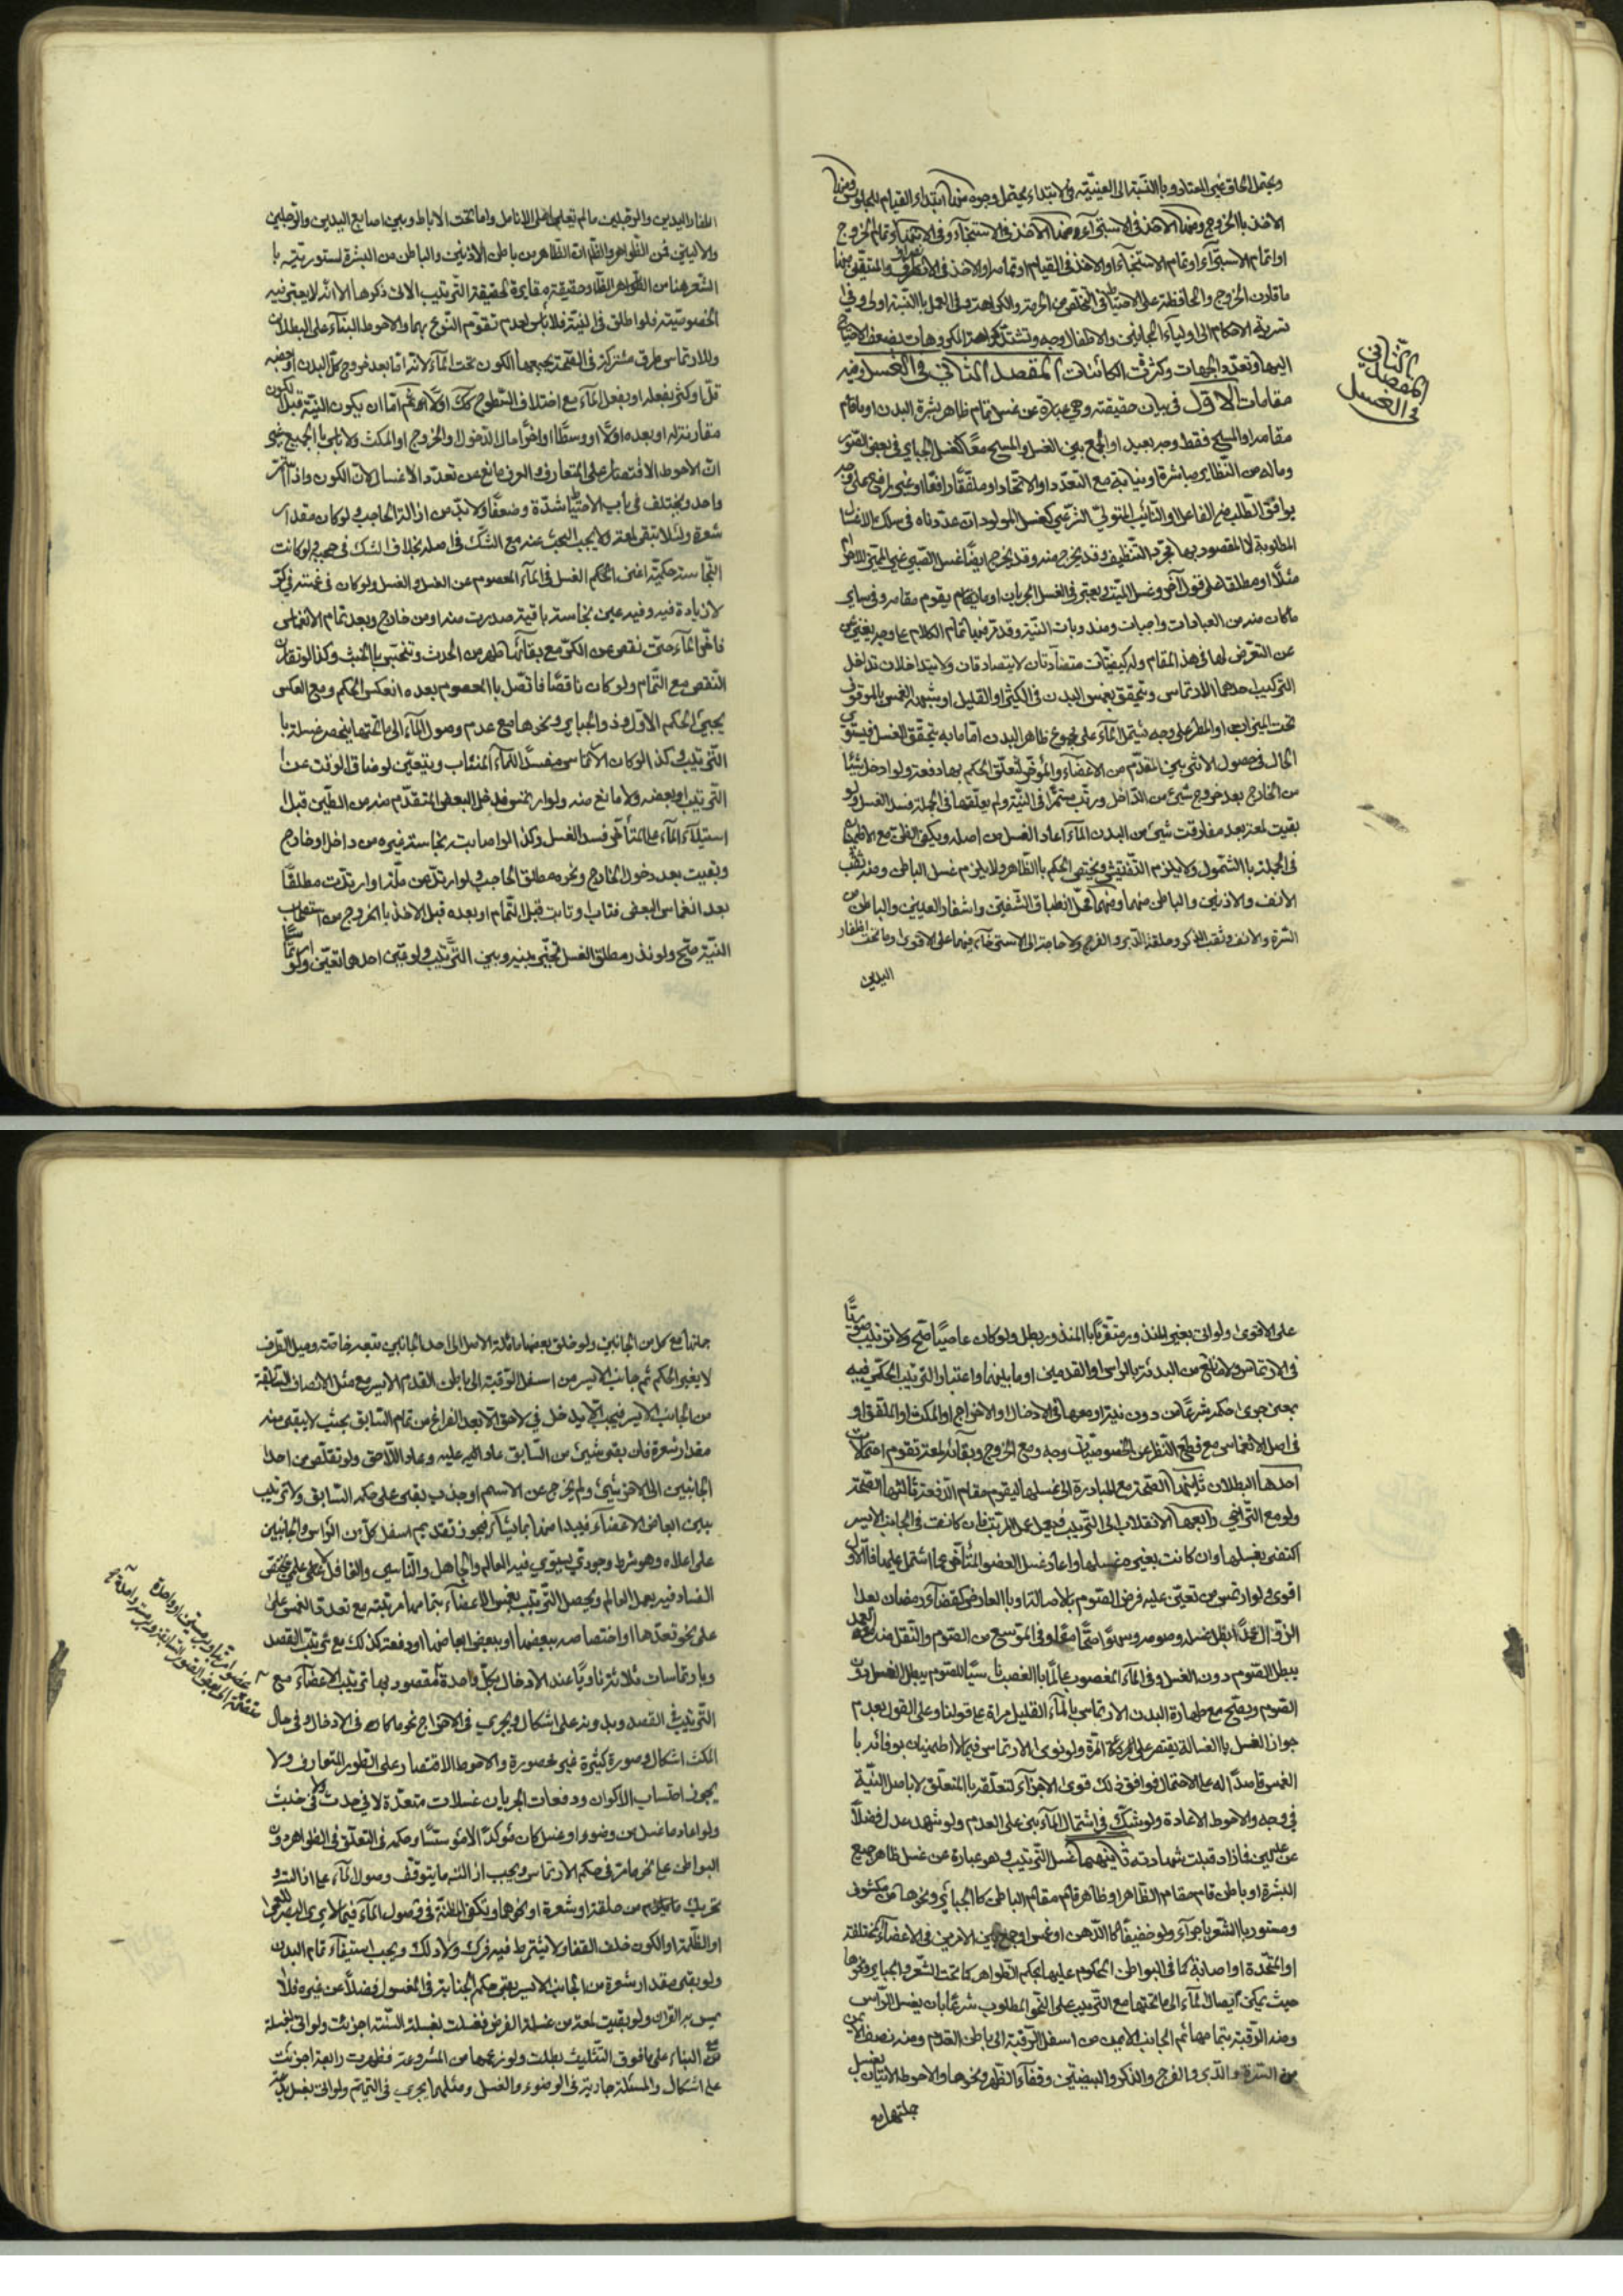 ويحتمل الحاق غير المعتاد وبالنسبة الى العينية في الابتداء يحتمل وجوه منها ابتداء القيام للجلوس ومنها
الاخذ بالخروج ومنها الاخذ في الاستبراء ومنها الاخذ في الاستنجاء وفي الانتهاء تمام الخروج
او اتمام الاستبراء او تمام الاستنجاء او الاخذ في القيام او تمامه او الاخذ في الانصراف والمتيقن منها
ما قارن الخروج والمحافظة على الاحتياط في التخلص من الحرمة والكراهة وفي العمل بالنسبة اولى وفي
تسرية الاحكام الى اولياء المجانين والاطفال وجه وتشتد كراهة المكروهات بضعف الاحتياج
اليها وتعدد الجهات وكثرت الكائنات المقصد الثاني في الغسل وفيه
مقامات الاول في بيان حقيقته وهي عبارة عن غسل تمام ظاهر بشرة البدن او ما قام
مقامه او المسح فقط وجه بعيد او الجمع بين الغسل والمسح معا كغسل الجبائر في بعض الصور
وماله من النظاير مباشرة او نيابة مع التعدد او الاتحاد او ملفقا رافعا او غير رافع على وجه
يوافق الطلب من الفاعل او النائب المتولي الشرعي كغسل المولود ان عددناه في سلك الاغسال
المطلوبة لا المقصود بها مجرد التنظيف وقد يخرج منه وقد يخرج ايضا غسل الصبي غير المميز للاحرام
مثلا او مطلقا على قول آخر وغسل الميت ويعتبر في الغسل الجريان او ما يقوم مقامه وفي ساير
ما كان منه من العبادات واجبات ومندوبات النية وقد مر فيها تمام الكلام على وجه يغني عن
عن التعرض لها في هذا المقام وله كيفيتان متضادتان لا يتصادقان ولا يتداخلان تداخل
التركيب احدهما الارتماسي ويتحقق بغمس البدن في الكثير او القليل او شبهه الغمس بالوقوف
تحت الميزاب او المطر على وجه يشتمل الماء على مجموع ظاهر البدن اما ما به يتحقق الغسل فيستوي
الحال في حصول الاثر بين المقدم من الاعضاء والمؤخر لتعلق الحكم بها دفعة ولو ادخل شيئا
من الخارج بعد خروج شيئ من الداخل ورتب مستمرا في النية ولم يعلقها في الجملة فسد الغسل ولو
بقيت لمعة بعد مفارقت شيئ من البدن الماء اعاد الغسل من اصله ويكفي الظن مع الاطمينان
في الجملة بالشمول ولا يلزم التفتيش ويختص الحكم بالظاهر ولا يلزم غسل الباطن ومنه ثقب
الانف والاذنين والباطن منهما ومنهما محل انطباق الشفتين واشفار العينين والباطن من
السرة والانف وثقب الذكر وحلقة الدبر والفرج ولا حاجة الى الاسترخاء فيهما على الاقوى وما تحت اظفار
اليدين
المقصد الثاني
في الغسل
اظفار اليدين والرجلين ما لم تعلو على الانامل واما تحت الاباط وبين اصابع اليدين والرجلين
والاليتين فمن الظواهر والظاهر ان الظاهر من باطن الاذنين والباطن من البشرة لستوريته با
الشعر هنا من الظواهر الظاهر وحقيقته مغايرة لحقيقة الترتيب الاتي ذكرها الا انه لا يعتبر نية
الخصوصية فلو اطلق في النية فلا باس لعدم تقوم النوع بهما والاحوط البناء على البطلان
وللارتماس طرق مشتركة في الصحة يجمعها الكون تحت الماء لانه اما بعد خروج كل البدن او بعضه
قل او كثر بفعله او بفعل الماء مع اختلاف السطوح كذلك اولا ثم اما ان يكون النية قبل الكون
مقارنة له او بعده اولا او وسطا او اخرا حال الدخول والخروج او المكث ولا باس بالجميع غير
ان الاحوط الاقتصار على المتعارف ولا مانع من تعدد الاغسال لان الكون واذا استمر
واحد ويختلف في باب الاحتياط شدة وضعفا ولا بد من ازالة الحاجب ولو كان مقدار
شعرة ولئلا تبقى لمعة ولا يجب البحث عنه مع الشك في اصله بخلاف الشك في حجبه ولو كانت
النجاسة حكمية اغنى الحكم الغسل في الماء المعصوم عن الغسل والغسل ولو كان في غمسة في كر
لا زيادة فيه وفيه عين نجاسة باقية صدرت منه او من خارج وبعد تمام الانغماس
فاض الماء حتى نقص عن الكر مع بقائها طهر من الحدث وتنجس بالخبث وكذا لو تقارن
النقص مع التمام ولو كان ناقصا فاتصل بالمعصوم بعده انعكس الحكم ومع العكس
يجيئ الحكم الاول وذو الجباير ونحوها مع عدم وصول الماء الى ما تحتها ينحصر غسله با
الترتيب وكذا لو كان الارتماس مفسدا للماء المنساب ويتعين لو ضاق الوقت عن
الترتيب او بعضه ولا مانع منه ولو ارتمس فدخل البعض المتقدم منه من الطين قبل
استيلاء الماء على المتأخر فسد الغسل وكذا لو اصابت نجاسة غيره من داخل او خارج
وبقيت بعد دخول الخارج ونحوه مطلق الحاجب ولو ارتد عن ملة او ارتدت مطلقا
بعد انغماس البعض فتاب وتابت قبل التمام او بعده قبل الاخذ بالخروج مع استصحاب
النية صح ولو نذر مطلق الغسل تخير بينه وبين الترتيب ولو عين احدهما تعين ولو
على الاقوى ولو اتى بغير المنذور متقربا بالمنذور بطل ولو كان عاصيا صح ولا ترتيب
في الارتماس ولا مانع من البدئة بالراس او القدمين او ما بينهما واعتبار الترتيب الحكمي فيه
بمعنى جرى حكمه شرعا من دون نية او معها في الادخال او الاخراج او المكث او الملفق او
في اصل الانغماس مع قطع النظر عن الخصوصيات وجه ومع الخروج وبقاء لمعة تقوم احتمالات
احدها البطلان ثانيها الصحة مع المبادرة الى غسلها ليقوم مقام الدفعة ثالثها الصحة
ولو مع التراخي رابعها الانقلاب الى الترتيب فيعمل عمل المرتب فان كانت في الجانب الايسر
اكتفى بغسلها وان كانت بغيره غسلها واعاد غسل العضو المتأخر عما اشتمل عليها فالاول
اقوى ولو ارتمس من تعين عليه فرض الصوم بالاصالة او بالعارض كقضاء رمضان بعد
الزوال عمدا بطل غسله وصومه وسهوا صحا معا وفي الموسع من الصوم والنفل منه مع العمد
يبطل الصوم دون الغسل وفي الماء المغصوب عالما بالغصب ناسيا للصوم يبطل الغسل دون
الصوم ويصح مع طهارة البدن الارتماس بالماء القليل مراة على قولنا وعلى القول بعدم
جواز الغسل بالغسالة يقتصر على المرة ولو نوى الارتماس فيما لا اطمينان بوفائه با
الغمس قاصدا له على الاحتمال فوافق ذلك قوى الاجزاء لتعلقه بالمتعلق لا باصل النية
في وجه والاحوط الاعادة ولو شك في اشتمال الماء بنى على العدم ولو شهد عدل فضلا
عن عدلين فازاد قبلت شهادته ثانيهما غسل الترتيب وهو عبارة عن غسل ظاهر جميع
البشرة او باطن قام مقام الظاهر او ظاهر قائم مقام الباطن كالجبائر ونحوها من مكشوف
ومستور بالشعر باجراء ولو خفيفا كالدهن او غمس او جمع بين الامرين في الاعضاء مختلفة
او المتحدة او اصابة كما في البواطن المحكوم عليها بحكم الظواهر كما تحت الشعر والجباير ونحوها
حيث يمكن ايصال الماء الى ما تحتها مع الترتيب على النحو المطلوب شرعا بان يغسل الراس
ومنه الرقبة بتمامهما ثم الجانب الايمن من اسفل الرقبة الى باطن القدم ومنه نصف الايمن
من السرة والدبر والفرج والذكر والبيضتين وقفاء الظهر ونحوها والاحوط الاتيان بغسل
جملتها مع
جملتها مع كل من الجانبين ولو خلق بعضها مائلة الاصل الى احد الجانبين تبعه خاصة وميل الطرف
لا يغير الحكم ثم جانب الايسر من اسفل الرقبة الى باطن القدم الايسر مع مثل الانصاف السابقة
من الجانب الايسر فيجب ان لا يدخل في لاحق الا بعد الفراغ من تمام السابق بحيث لا يبقى منه
مقدار شعرة فان بقى شيئ من السابق عاد اليه وعاد اللاحق ولو تقلص من احد
الجانبين الى الاخر شيئ ولم يخرج عن الاسم او جذب بقى على حكمه السابق ولا ترتيب
بين ابعاض الاعضاء فيبدا منها بما يشاء فيجوز تقديم اسفل كل من الراس والجانبين
على اعلاه وهو شرط وجودي يستوي فيه العالم والجاهل والناسي والغافل
الفساد فيه بعمل العالم ويحصل الترتيب بغمس الاعضاء بتمامها مرتبة مع تعدد الغمس على
على نحو تعددها او اختصاصه ببعضها او ببعض ابعاضها او دفعة كذلك مع ترتيب القصد
وبارتماسات ثلاثة ناويا عند الادخال بكل واحدة مقصود بها ترتيب الاعضاء مع
الترتيب في القصد وبدونه على اشكال ويجري في الاخراج نحو ما كان في الادخال وفي حال
المكث اشكال وصوره كثيرة غير محصورة والاحوط الاقتصار على الطور المتعارف ولا
يجوز احتساب الاكوان ودفعات الجريان غسلات متعددة لا في حدث ولا في خبث
ولو اعاد ما غسل من وضوء او غسل كان مؤكدا لا مؤسسا وحكمه في التعلق في الظواهر دون
البواطن على نحو ما مر في حكم الارتماس ويجب ازالة ما يتوقف وصول الماء على ازالته و
تحريك ما يلزم من حلقة او شعرة او نحوهما وتكفي المظنة في وصول الماء فيما لا يرى البصر للعمى
او الظلمة او الكون خلف القفا ولا يشترط فيه فرك ولا دلك ويجب استيفاء تمام البدن
ولو بقى مقدار شعرة من الجانب الايسر بقى حكم الجنابة في المغسول فضلا عن غيره فلا
يمس به القران ولو بقيت لمعة من غسلة الفرض فغسلت بغسلة السنة اجزئت ولو اتى بغسلة
مع البناء على ما فوق التثليث بطلت ولو زعمها من المشروعة فظهرت رابعة اجزئت
على اشكال والمسئلة جارية في الوضوء والغسل ومثلهما يجري في التيمم ولو اتى بغسل